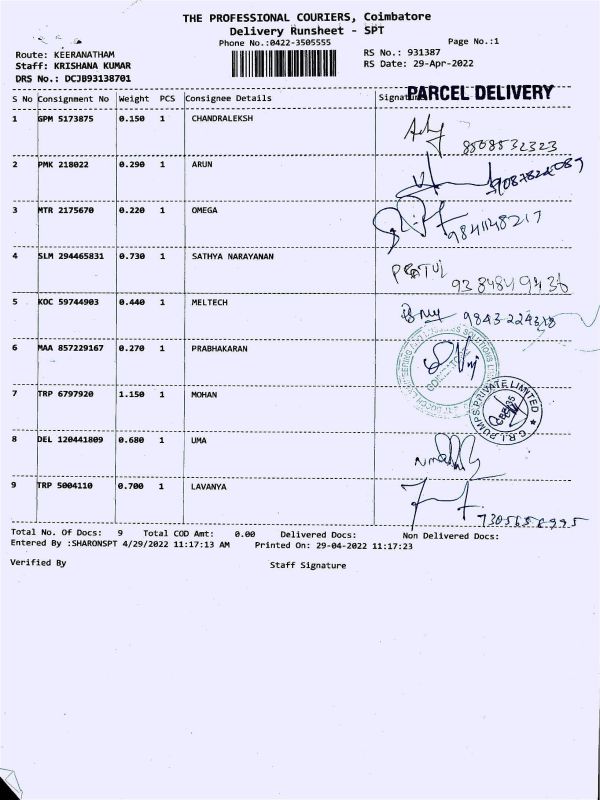 THE PROFESSIONAL COURIERS, Coimbatore
Delivery Runsheet - SPT
Phone No.:0422-3505555 Page No.:1
Route: KEERANATHAM RS No.: 931387
Staff: KRISHANA KUMAR RS Date: 29-Apr-2022
DRS No.: DCJB93138701
S No Consignment No Weight PCS Consignee Details Signature PARCEL DELIVERY
1 GPM 5173875 0.150 1 CHANDRALEKSH
8508532323
2 PMK 218022 0.290 1 ARUN
3 MTR 2175670 0.220 1 OMEGA
9841148217
4 SLM 294465831 0.730 1 SATHYA NARAYANAN
9384849436
5 KOC 59744903 0.440 1 MELTECH
6 MAA 857229167 0.270 1 PRABHAKARAN
7 TRP 6797920 1.150 1 MOHAN
C.R.I. PUMPS PRIVATE LIMITED
8 DEL 120441809 0.680 1 UMA
9 TRP 5004110 0.700 1 LAVANYA
Total No. Of Docs: 9 Total COD Amt: 0.00 Delivered Docs: Non Delivered Docs:
Entered By :SHARONSPT 4/29/2022 11:17:13 AM Printed On: 29-04-2022 11:17:23
Verified By Staff Signature